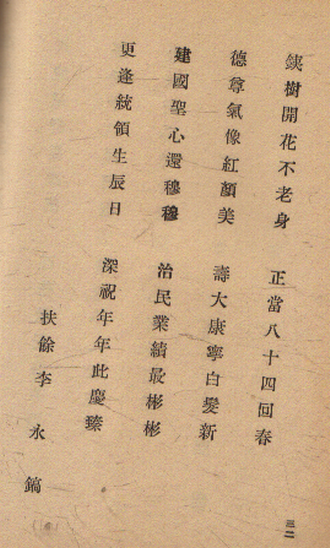 鐵樹開花不老身
正當八十四回春
德尊氣像紅顏美
壽大康寧白髮新
建國聖心還穆穆
治民業績最彬彬
更逢統領生辰日
深祝年年此慶臻
扶餘李永鎬
三二